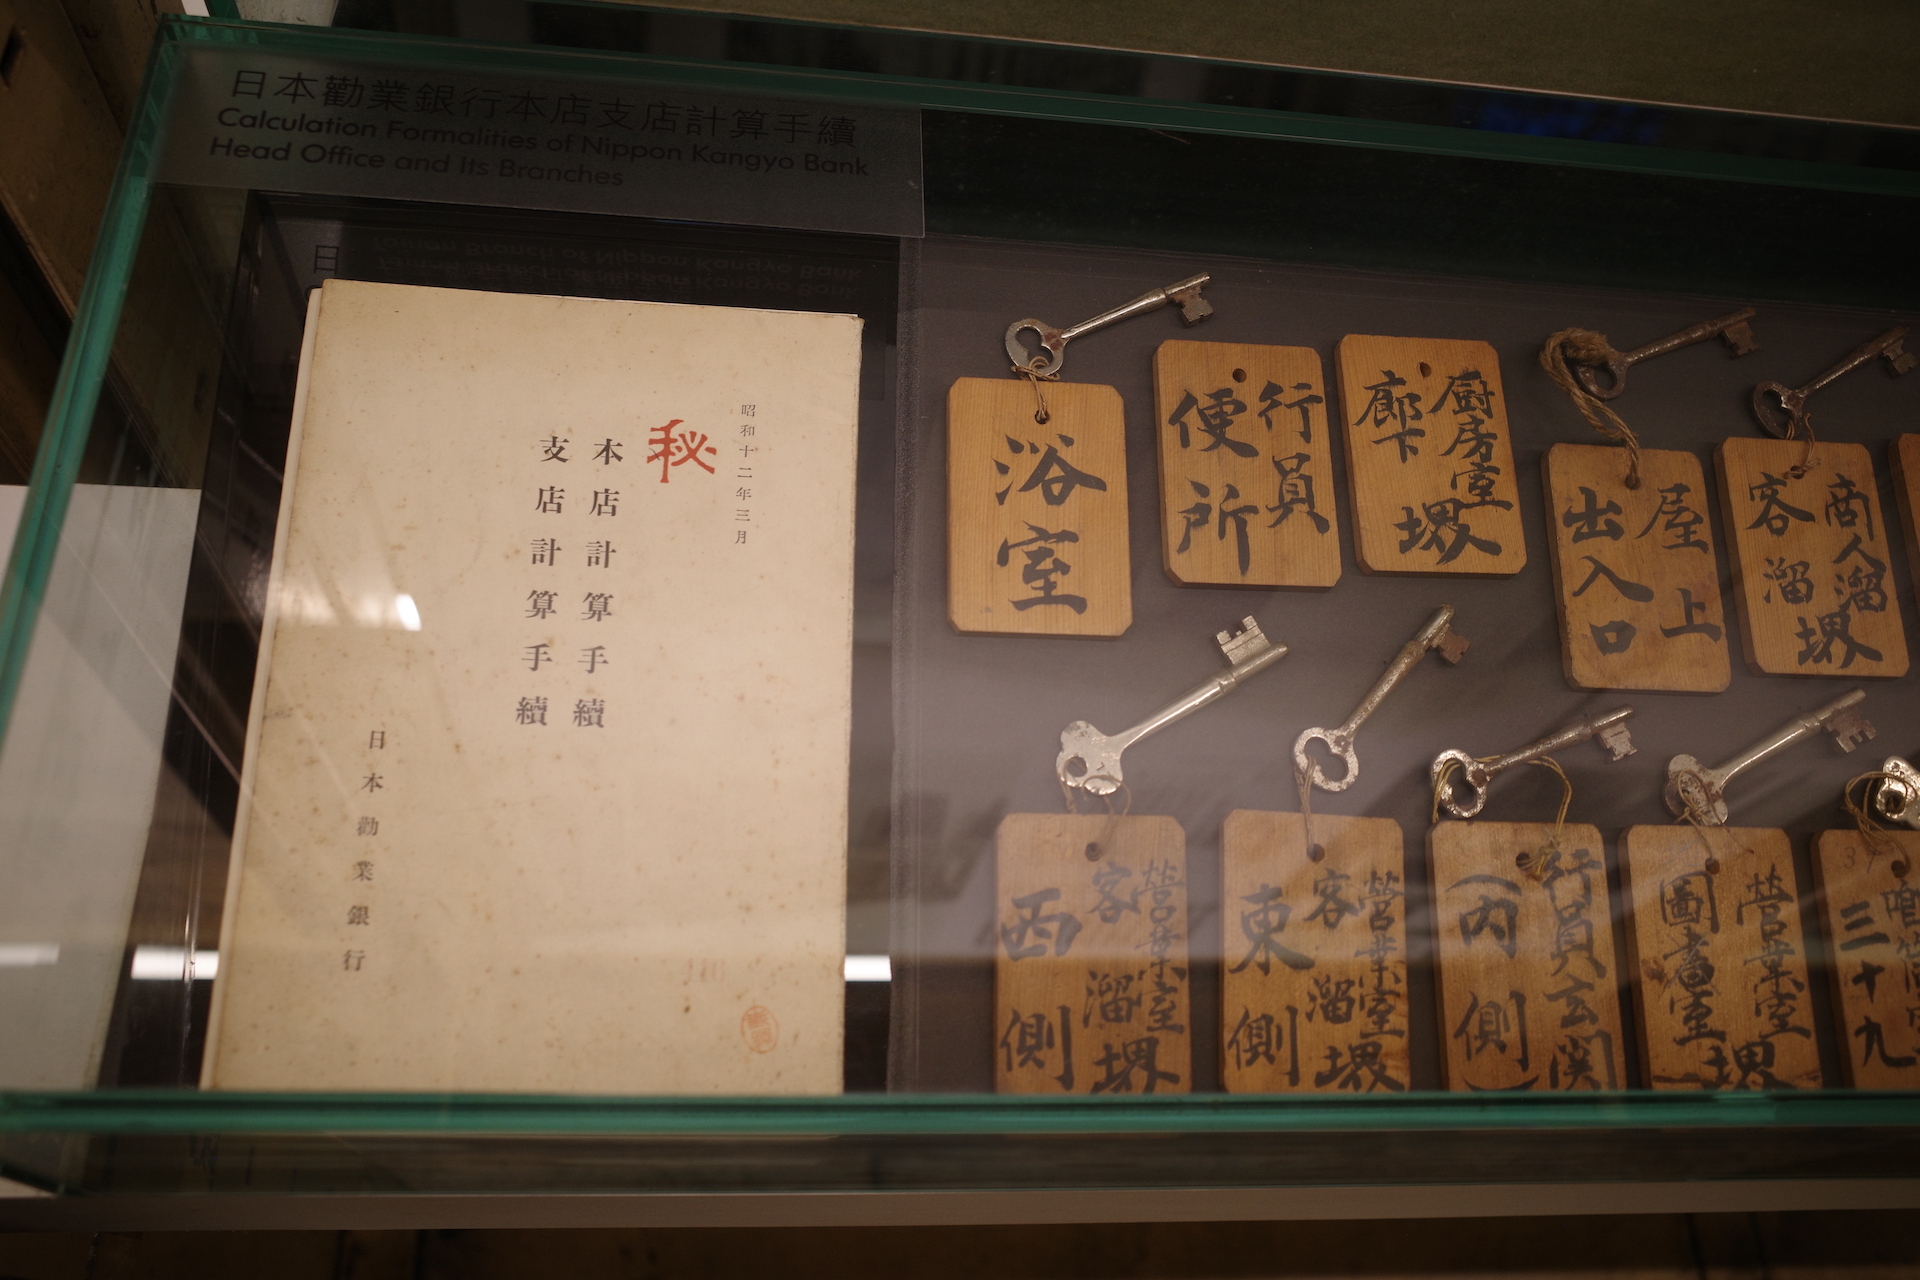 日本勸業銀行本店支店計算手續
Calculation Formalities of Nippon Kangyo Bank
Head Office and Its Branches
日
昭和十二年三月
秘
本店計算手續
支店計算手續
日本勸業銀行
浴室
行員
便所
厨房室堺
廊下
屋上
出入口
商人溜堺
客溜
營業室堺
客溜
西側
營業室堺
客溜
東側
行員玄関
(内側)
營業室堺
圖書室
三十九